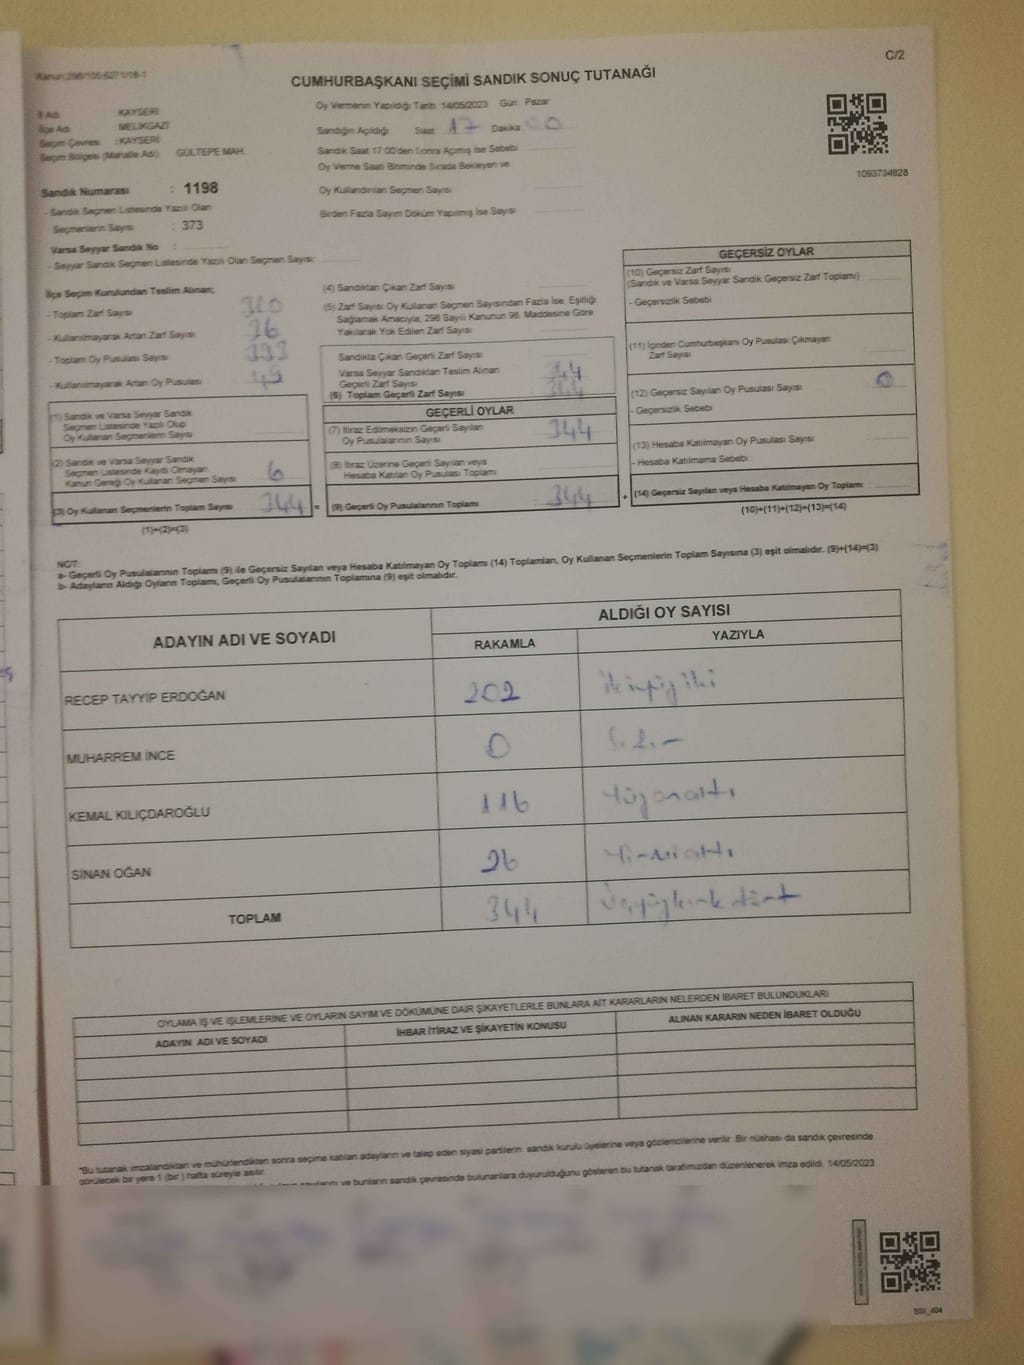 C/2
Kanun:298/105 6271/18-1
CUMHURBAŞKANI SEÇİMİ SANDIK SONUÇ TUTANAĞI
İl Adı : KAYSERİ
İlçe Adı MELİKGAZİ
Seçim Çevresi : KAYSERİ
Seçim Bölgesi (Mahalle Adı) GÜLTEPE MAH.
Sandık Numarası : 1198
- Sandık Seçmen Listesinde Yazılı Olan
Seçmenlerin Sayısı : 373
Varsa Seyyar Sandık No :
- Seyyar Sandık Seçmen Listesinde Yazılı Olan Seçmen Sayısı:
Oy Vermenin Yapıldığı Tarih 14/05/2023 Gün Pazar
Sandığın Açıldığı Saat 17 Dakika 00
Sandık Saat 17:00'den Sonra Açımış İse Sebebi
Oy Verme Saati Bitiminde Sırada Bekleyen ve
Oy Kullandırılan Seçmen Sayısı
Birden Fazla Sayım Döküm Yapılmış İse Sayısı
1093734828
İlçe Seçim Kurulundan Teslim Alınan;
- Toplam Zarf Sayısı
- Kullanılmayarak Artan Zarf Sayısı
- Toplam Oy Pusulası Sayısı 393
- Kullanılmayarak Artan Oy Pusulası 49
(1) Sandık ve Varsa Seyyar Sandık
Seçmen Listesinde Yazılı Olup
Oy Kullanan Seçmenlerin Sayısı
(2) Sandık ve Varsa Seyyar Sandık
Seçmen Listesinde Kayıtlı Olmayan
Kanun Gereği Oy Kullanan Seçmen Sayısı 6
(3) Oy Kullanan Seçmenlerin Toplam Sayısı 344 =
(1)+(2)=(3)
(4) Sandıktan Çıkan Zarf Sayısı
(5) Zarf Sayısı Oy Kullanan Seçmen Sayısından Fazla İse, Eşitliği
Sağlamak Amacıyla, 298 Sayılı Kanunun 98. Maddesine Göre
Yakılarak Yok Edilen Zarf Sayısı
Sandıkta Çıkan Geçerli Zarf Sayısı
Varsa Seyyar Sandıktan Teslim Alınan
Geçerli Zarf Sayısı
(6) Toplam Geçerli Zarf Sayısı 344
GEÇERLİ OYLAR
(7) İtiraz Edilmeksizin Geçerli Sayılan
Oy Pusulalarının Sayısı 344
(8) İtiraz Üzerine Geçerli Sayılan veya
Hesaba Katılan Oy Pusulası Toplamı
(9) Geçerli Oy Pusulalarının Toplamı 344 +
GEÇERSİZ OYLAR
(10) Geçersiz Zarf Sayısı
(Sandık ve Varsa Seyyar Sandık Geçersiz Zarf Toplamı)
- Geçersizlik Sebebi
(11) İçinden Cumhurbaşkanı Oy Pusulası Çıkmayan
Zarf Sayısı
(12) Geçersiz Sayılan Oy Pusulası Sayısı 0
- Geçersizlik Sebebi
(13) Hesaba Katılmayan Oy Pusulası Sayısı
- Hesaba Katılmama Sebebi
(14) Geçersiz Sayılan veya Hesaba Katılmayan Oy Toplamı :
(10)+(11)+(12)+(13)=(14)
NOT:
a- Geçerli Oy Pusulalarının Toplamı (9) ile Geçersiz Sayılan veya Hesaba Katılmayan Oy Toplamı (14) Toplamları, Oy Kullanan Seçmenlerin Toplam Sayısına (3) eşit olmalıdır. (9)+(14)=(3)
b- Adayların Aldığı Oyların Toplamı, Geçerli Oy Pusulalarının Toplamına (9) eşit olmalıdır.
ADAYIN ADI VE SOYADI ALDIĞI OY SAYISI
RAKAMLA YAZIYLA
RECEP TAYYİP ERDOĞAN 202 ikiyüziki
MUHARREM İNCE 0
KEMAL KILIÇDAROĞLU 116 yüzonaltı
SİNAN OĞAN 26 yirmialtı
TOPLAM 344 üçyüzkırkdört
OYLAMA İŞ VE İŞLEMLERİNE VE OYLARIN SAYIM VE DÖKÜMÜNE DAİR ŞİKAYETLERLE BUNLARA AİT KARARLARIN NELERDEN İBARET BULUNDUKLARI
ADAYIN ADI VE SOYADI İHBAR İTİRAZ VE ŞİKAYETİN KONUSU ALINAN KARARIN NEDEN İBARET OLDUĞU
"Bu tutanak imzalandıktan ve mühürlendikten sonra seçime katılan adayların ve talep eden siyasi partilerin sandık kurulu üyelerine veya gözlemcilerine verilir. Bir nüshası da sandık çevresinde
görülecek bir yere 1 (bir ) hafta süreyle asılır.
ve bunların sandık çevresinde bulunanlara duyurulduğunu gösteren bu tutanak tarafımızdan düzenlenerek imza edildi. 14/05/2023
SSI_404